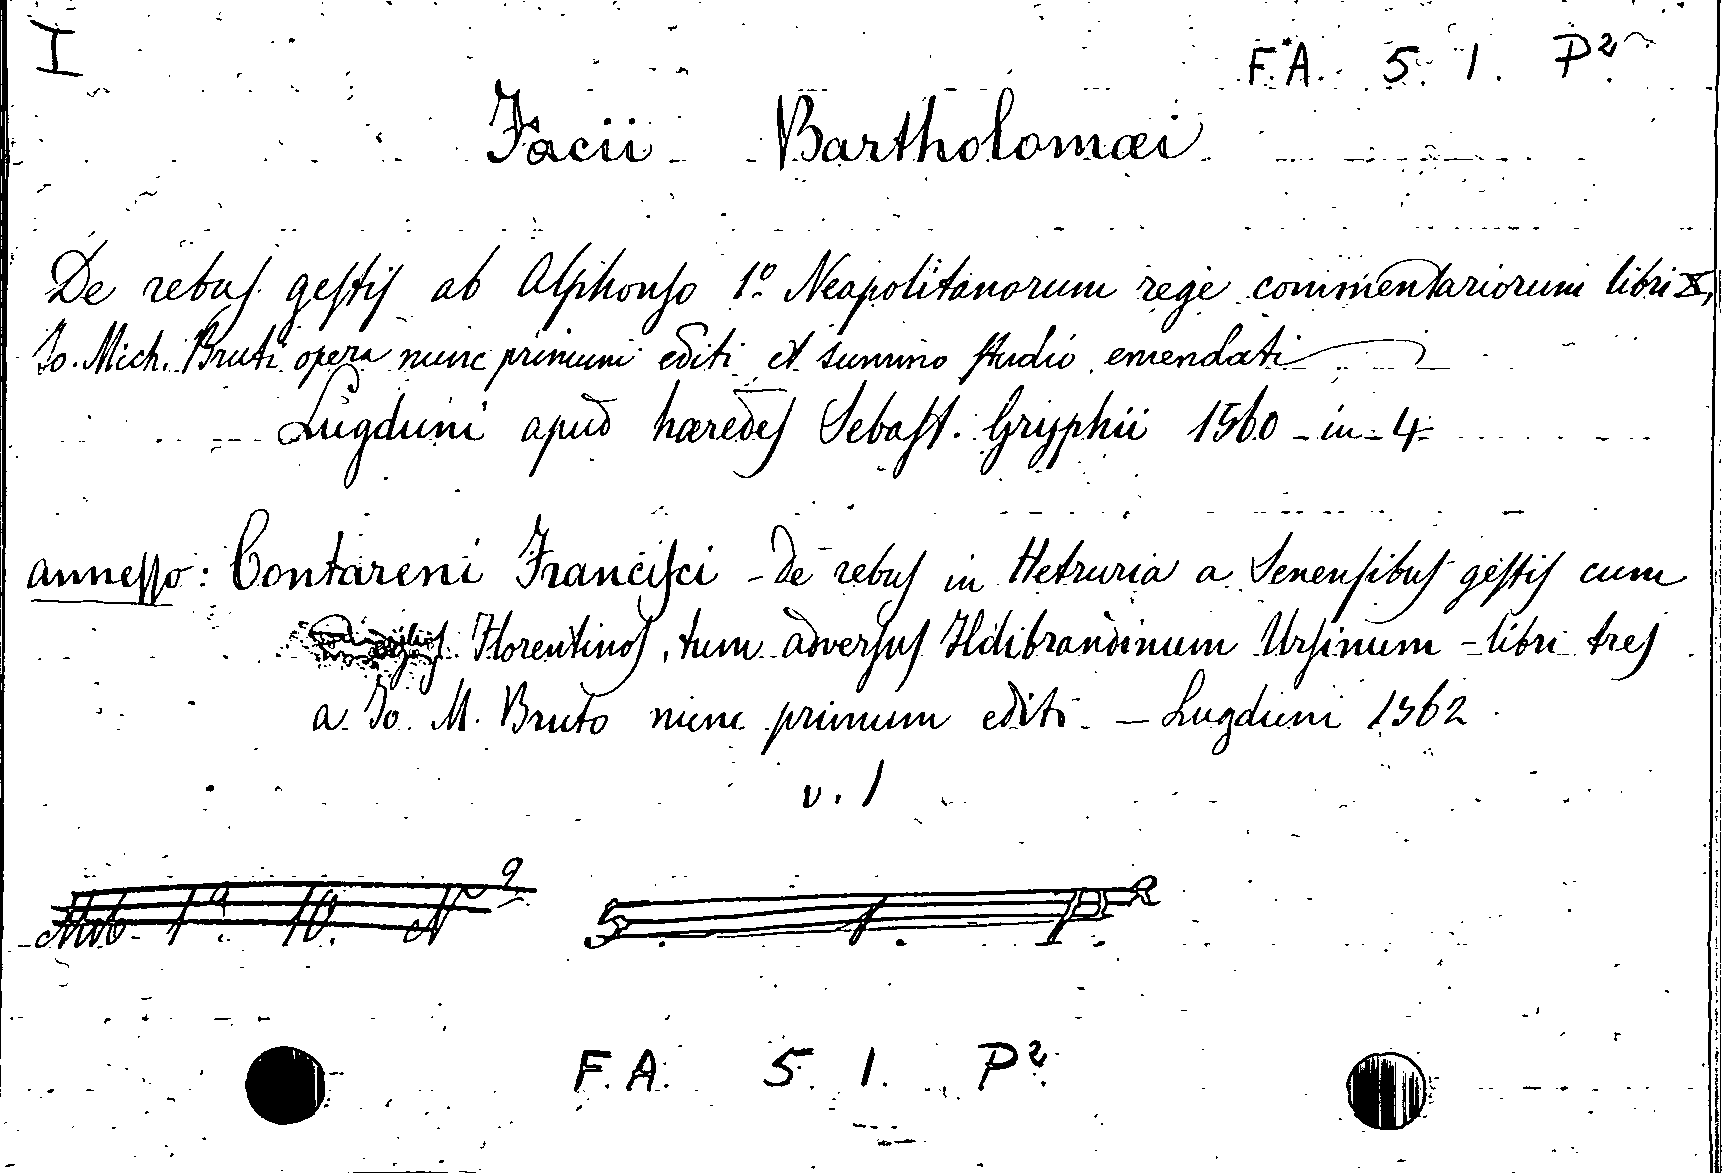 I
F.A. 5. 1. P².
Facii Bartholomæi
De rebus gestis ab Alphonso 1º Neapolitanorum rege commentariorum libri X,
Jo. Mich. Bruti opera nunc primum editi et summo studio emendati
Lugduni apud hæredes Sebast. Gryphii 1560 - in - 4
annesso: Contareni Francisci - de rebus in Hetruria a Senensibus gestis cum
Florentinos, tum adversus Ildibrandinum Ursinum - libri tres
a Jo. M. Bruto nunc primum editi - Lugduni 1562
v. 1
5. 1. P. 2
F.A. 5. 1. P².